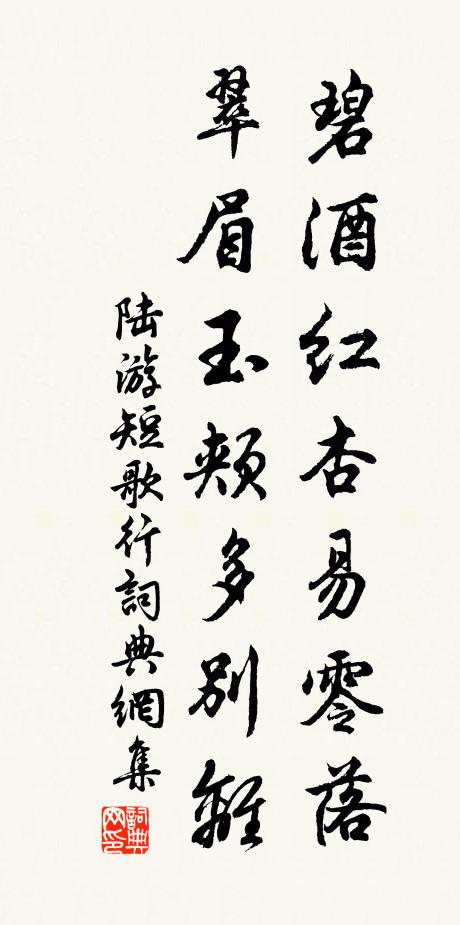 碧酒红杏易零落
翠眉玉颊多别離
陆游短歌行詞典網集
詞典网印